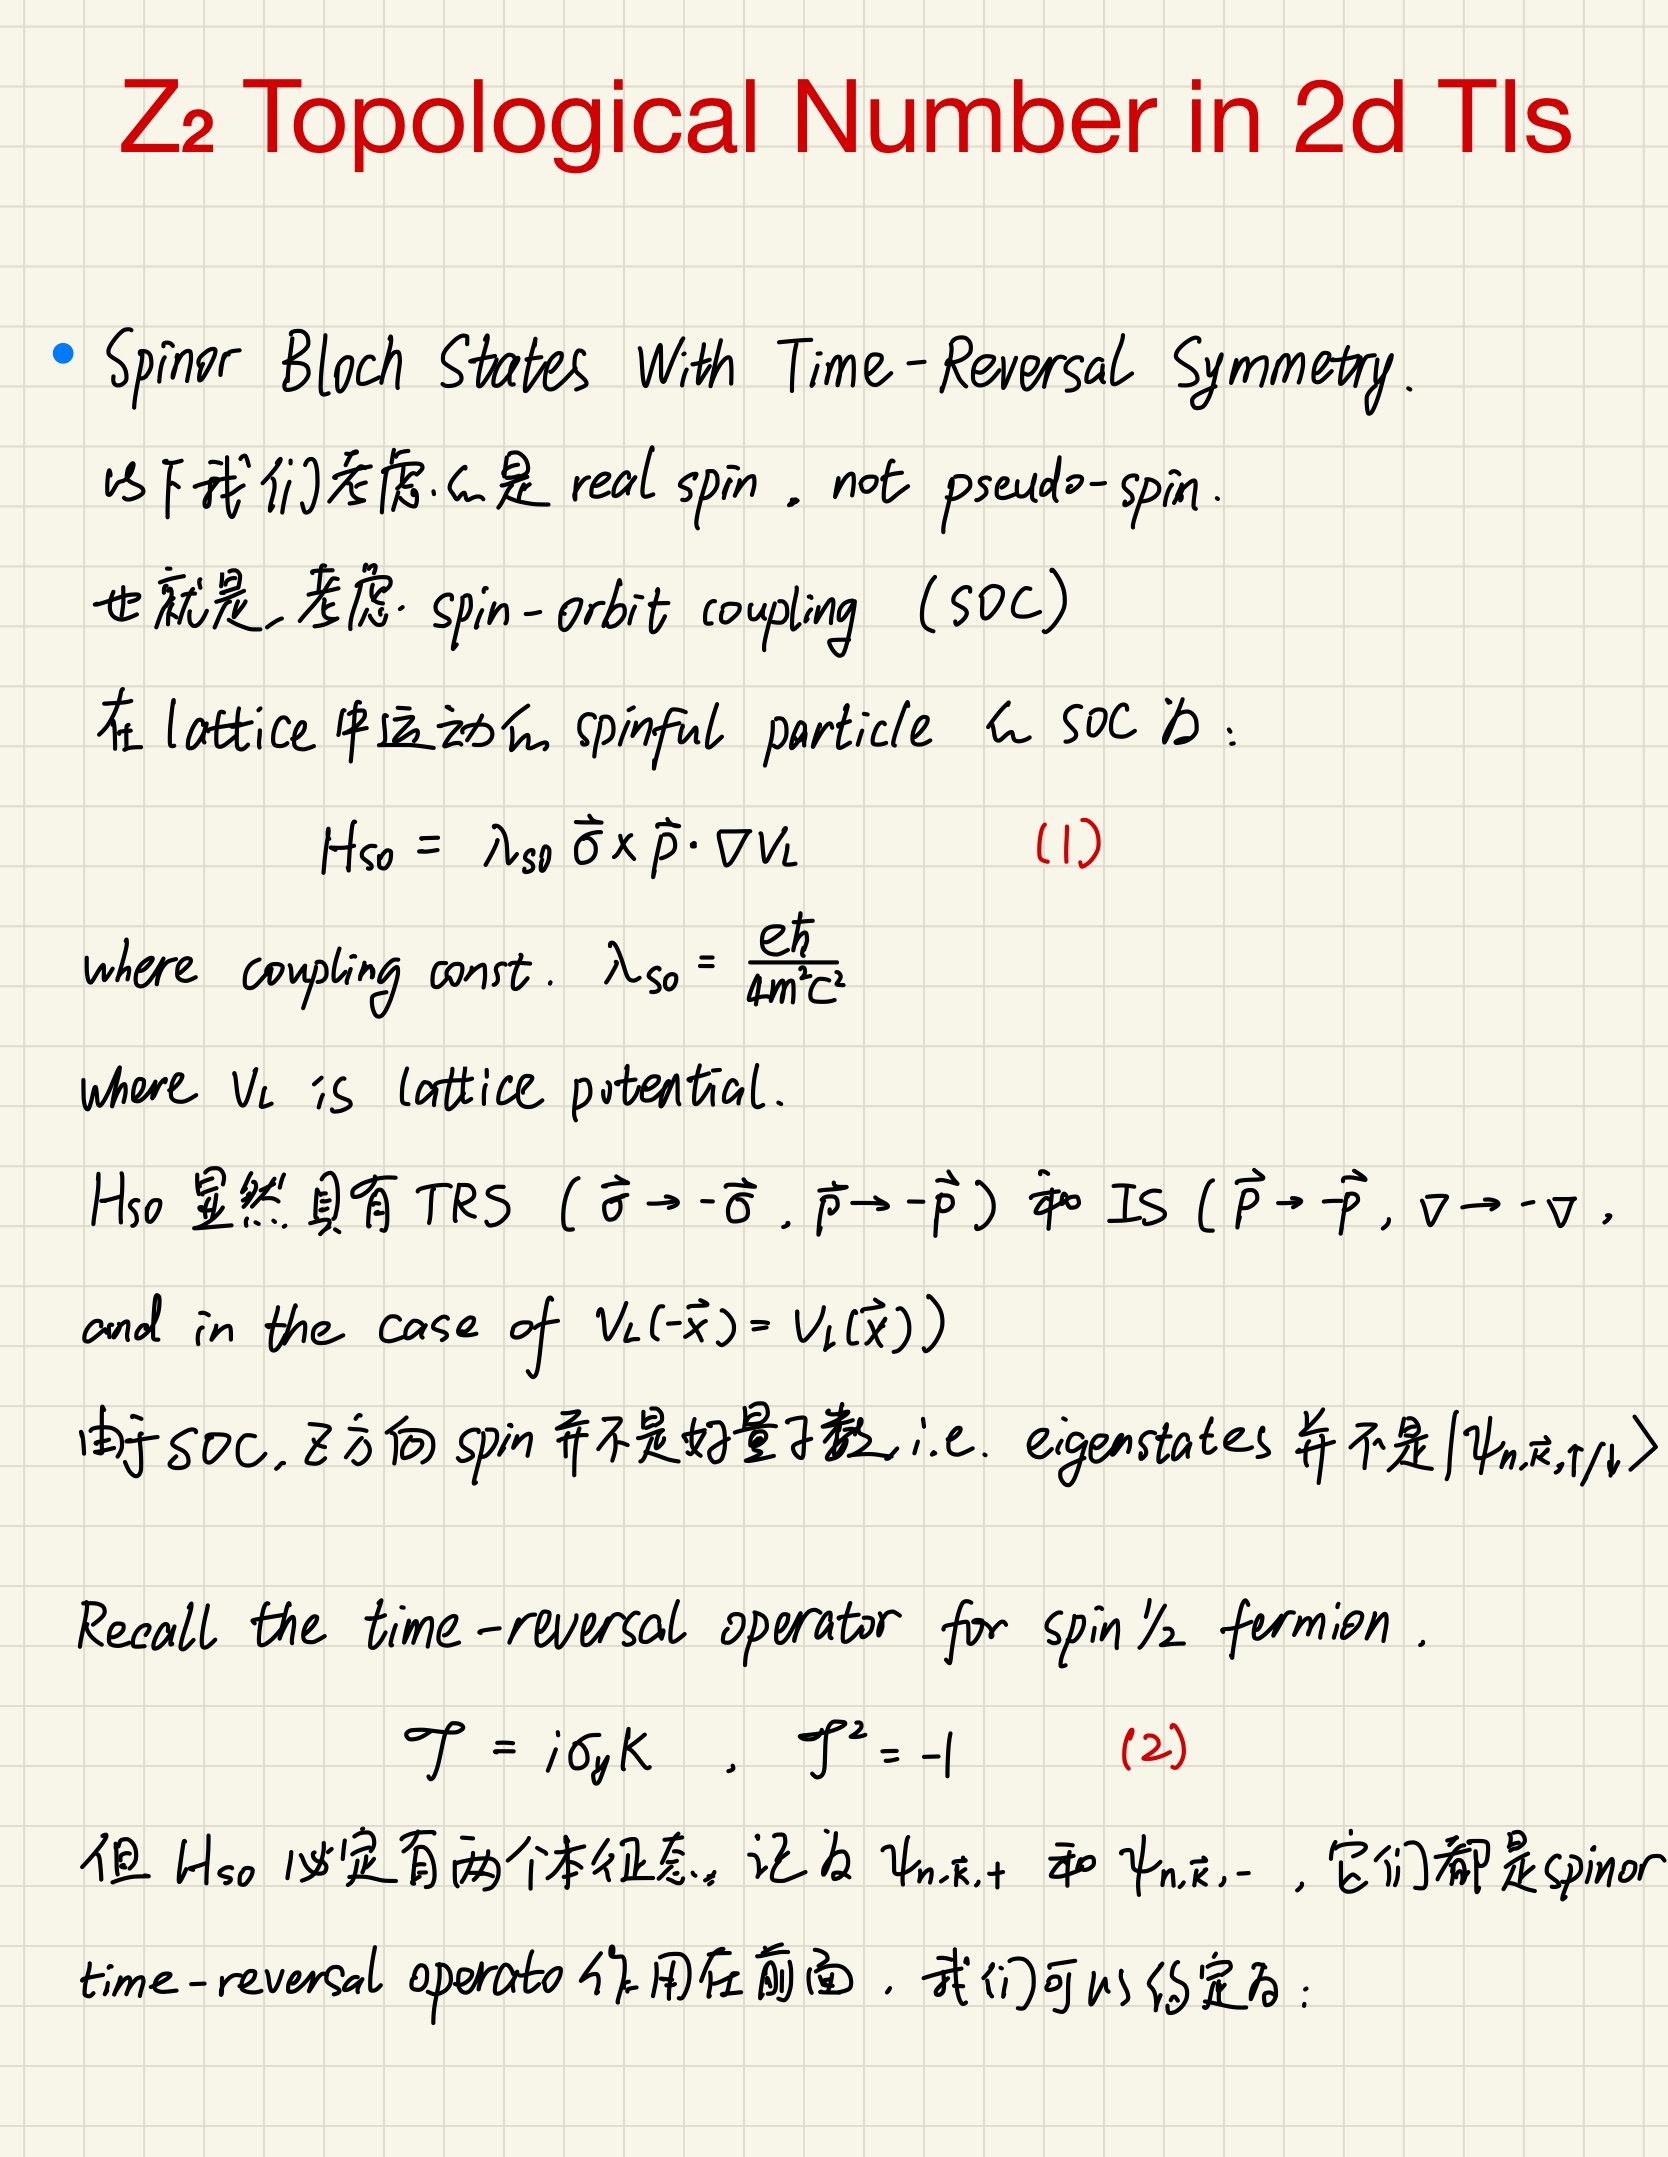 Z₂ Topological Number in 2d TIs
• Spinor Bloch States With Time-Reversal Symmetry.
以下我们考虑的是 real spin, not pseudo-spin.
也就是, 考虑 spin-orbit coupling (SOC)
在 lattice 中运动的 spinful particle 的 SOC 为:
H_{so} = λ_{so} \vec{σ} × \vec{p} · ∇V_L (1)
where coupling const. λ_{so} = \frac{eħ}{4m²c²}
where V_L is lattice potential.
H_{so} 显然具有 TRS ( \vec{σ} → -\vec{σ}, \vec{p} → -\vec{p} ) 和 IS ( \vec{p} → -\vec{p}, ∇ → -∇,
and in the case of V_L(-\vec{x}) = V_L(\vec{x}))
由于 SOC, z方向 spin 并不是好量子数, i.e. eigenstates 并不是 |ψ_{n,\vec{k},↑/↓}⟩
Recall the time-reversal operator for spin 1/2 fermion.
𝒯 = iσ_y K , 𝒯² = -1 (2)
但 H_{so} 必定有两个本征态, 记为 ψ_{n,\vec{k},+} 和 ψ_{n,\vec{k},-}, 它们都是spinor
time-reversal operato 作用在前面, 我们可以约定为: